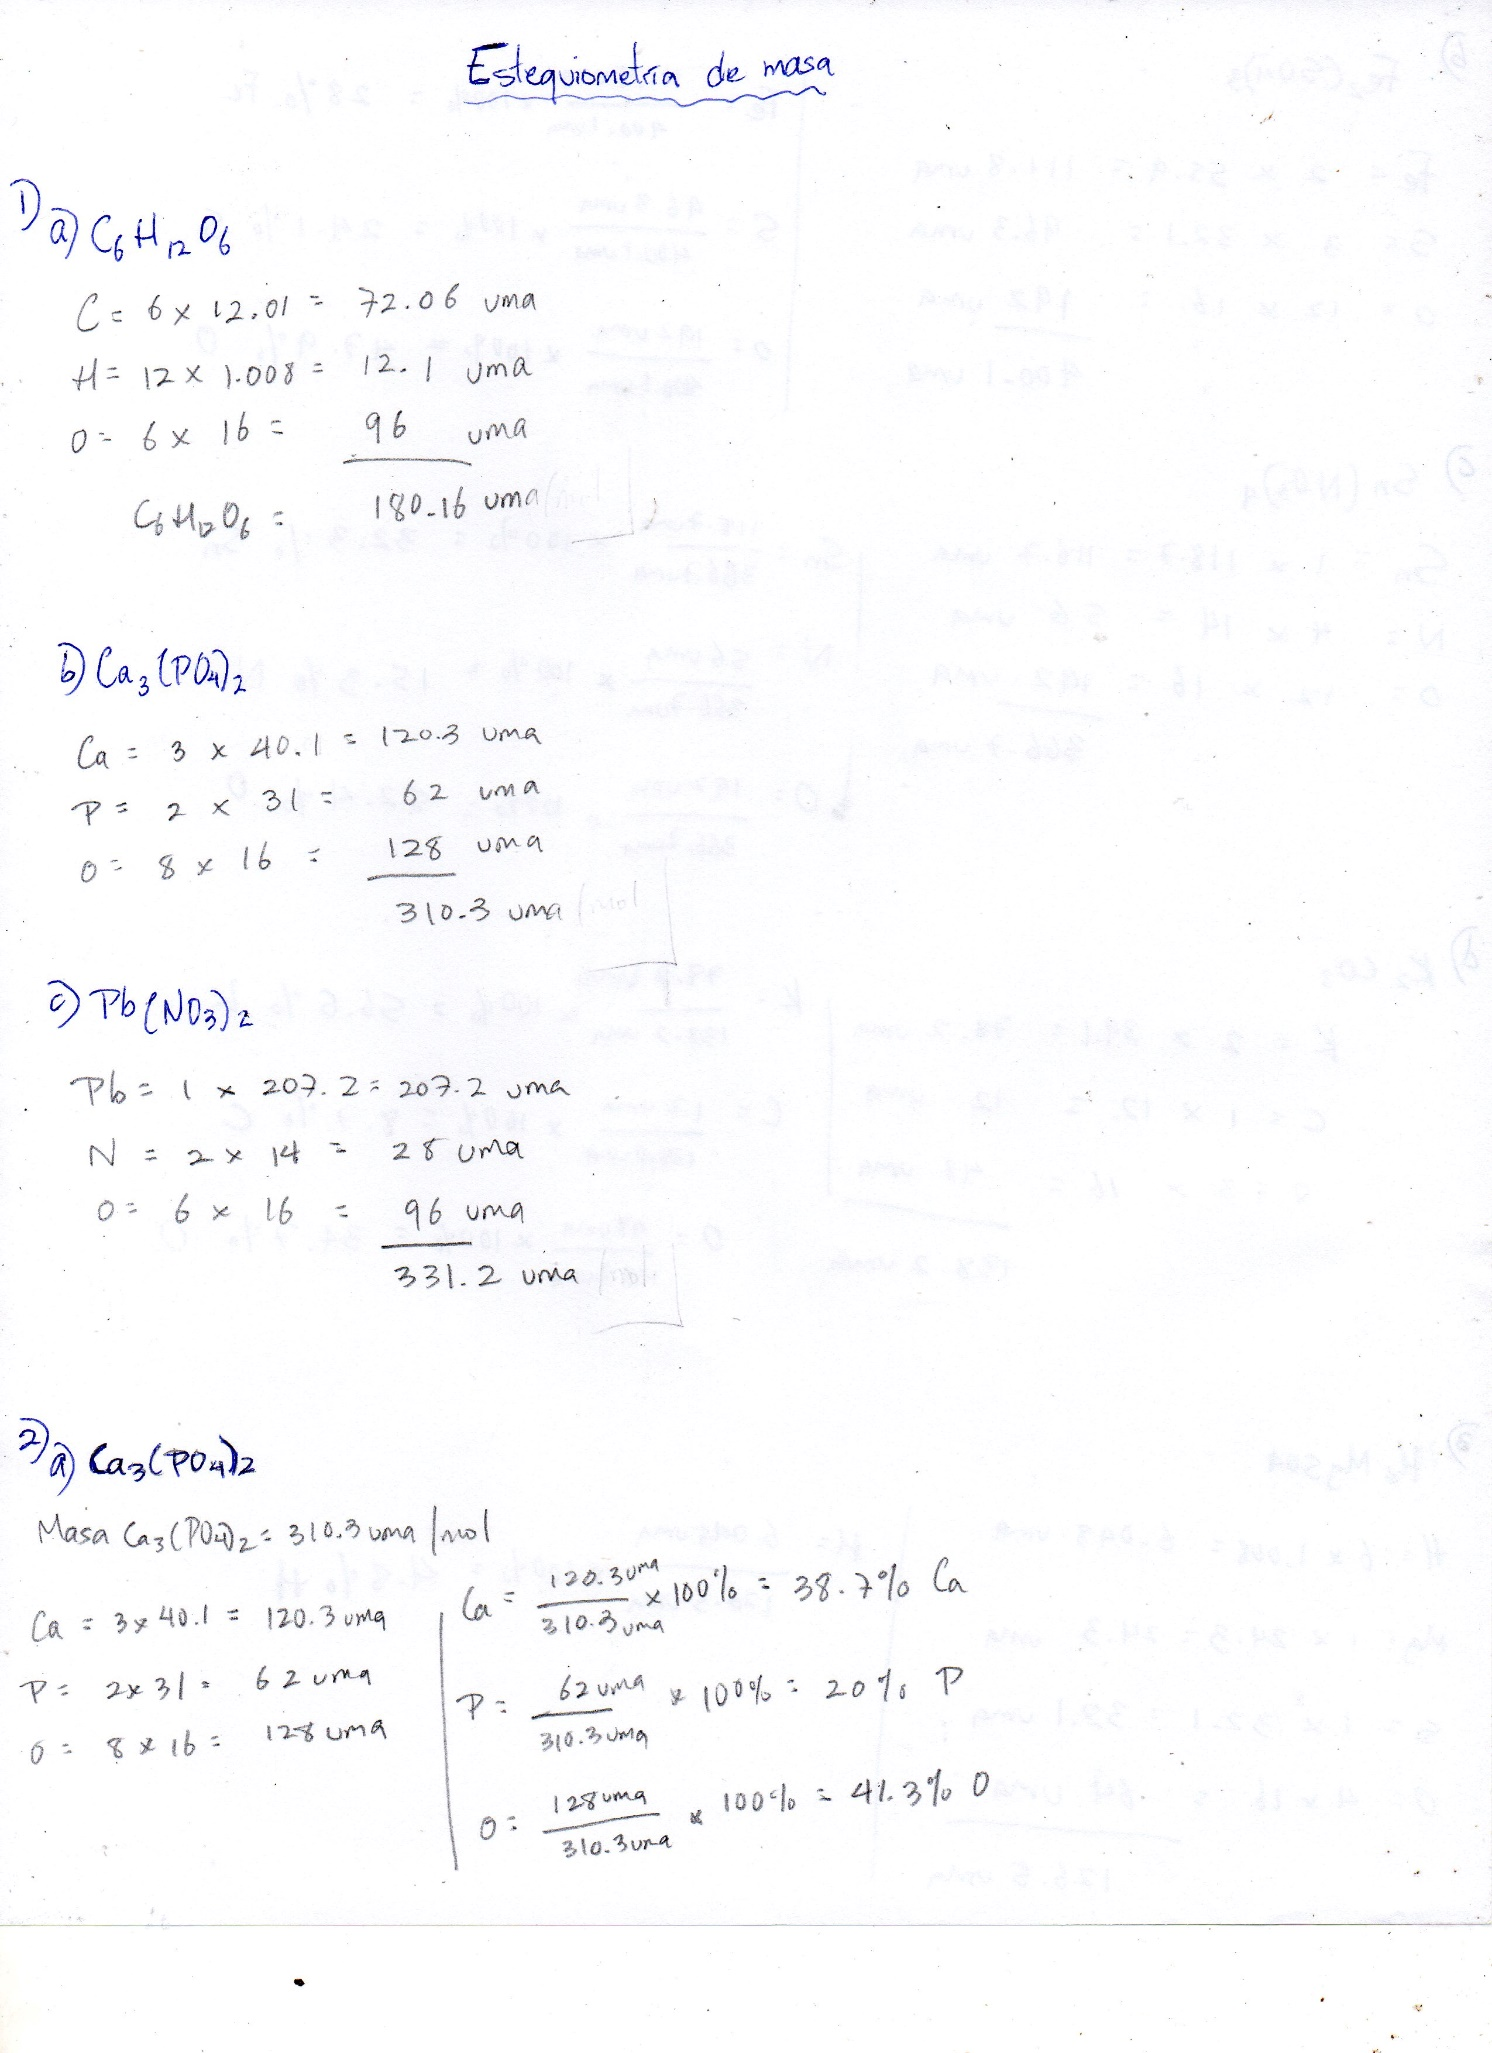 Estequiometría de masa
1) a) C6H12O6
C = 6 x 12.01 = 72.06 uma
H = 12 x 1.008 = 12.1 uma
O = 6 x 16 = 96 uma
C6H12O6 = 180.16 uma
b) Ca3(PO4)2
Ca = 3 x 40.1 = 120.3 uma
P = 2 x 31 = 62 uma
O = 8 x 16 = 128 uma
310.3 uma/mol
c) Pb(NO3)2
Pb = 1 x 207.2 = 207.2 uma
N = 2 x 14 = 28 uma
O = 6 x 16 = 96 uma
331.2 uma/mol
2) a) Ca3(PO4)2
Masa Ca3(PO4)2 = 310.3 uma/mol
Ca = 3 x 40.1 = 120.3 uma
P = 2x31 = 62 uma
O = 8 x 16 = 128 uma
Ca = 120.3 uma / 310.3 uma x 100% = 38.7% Ca
P = 62 uma / 310.3 uma x 100% = 20% P
O = 128 uma / 310.3 uma x 100% = 41.3% O